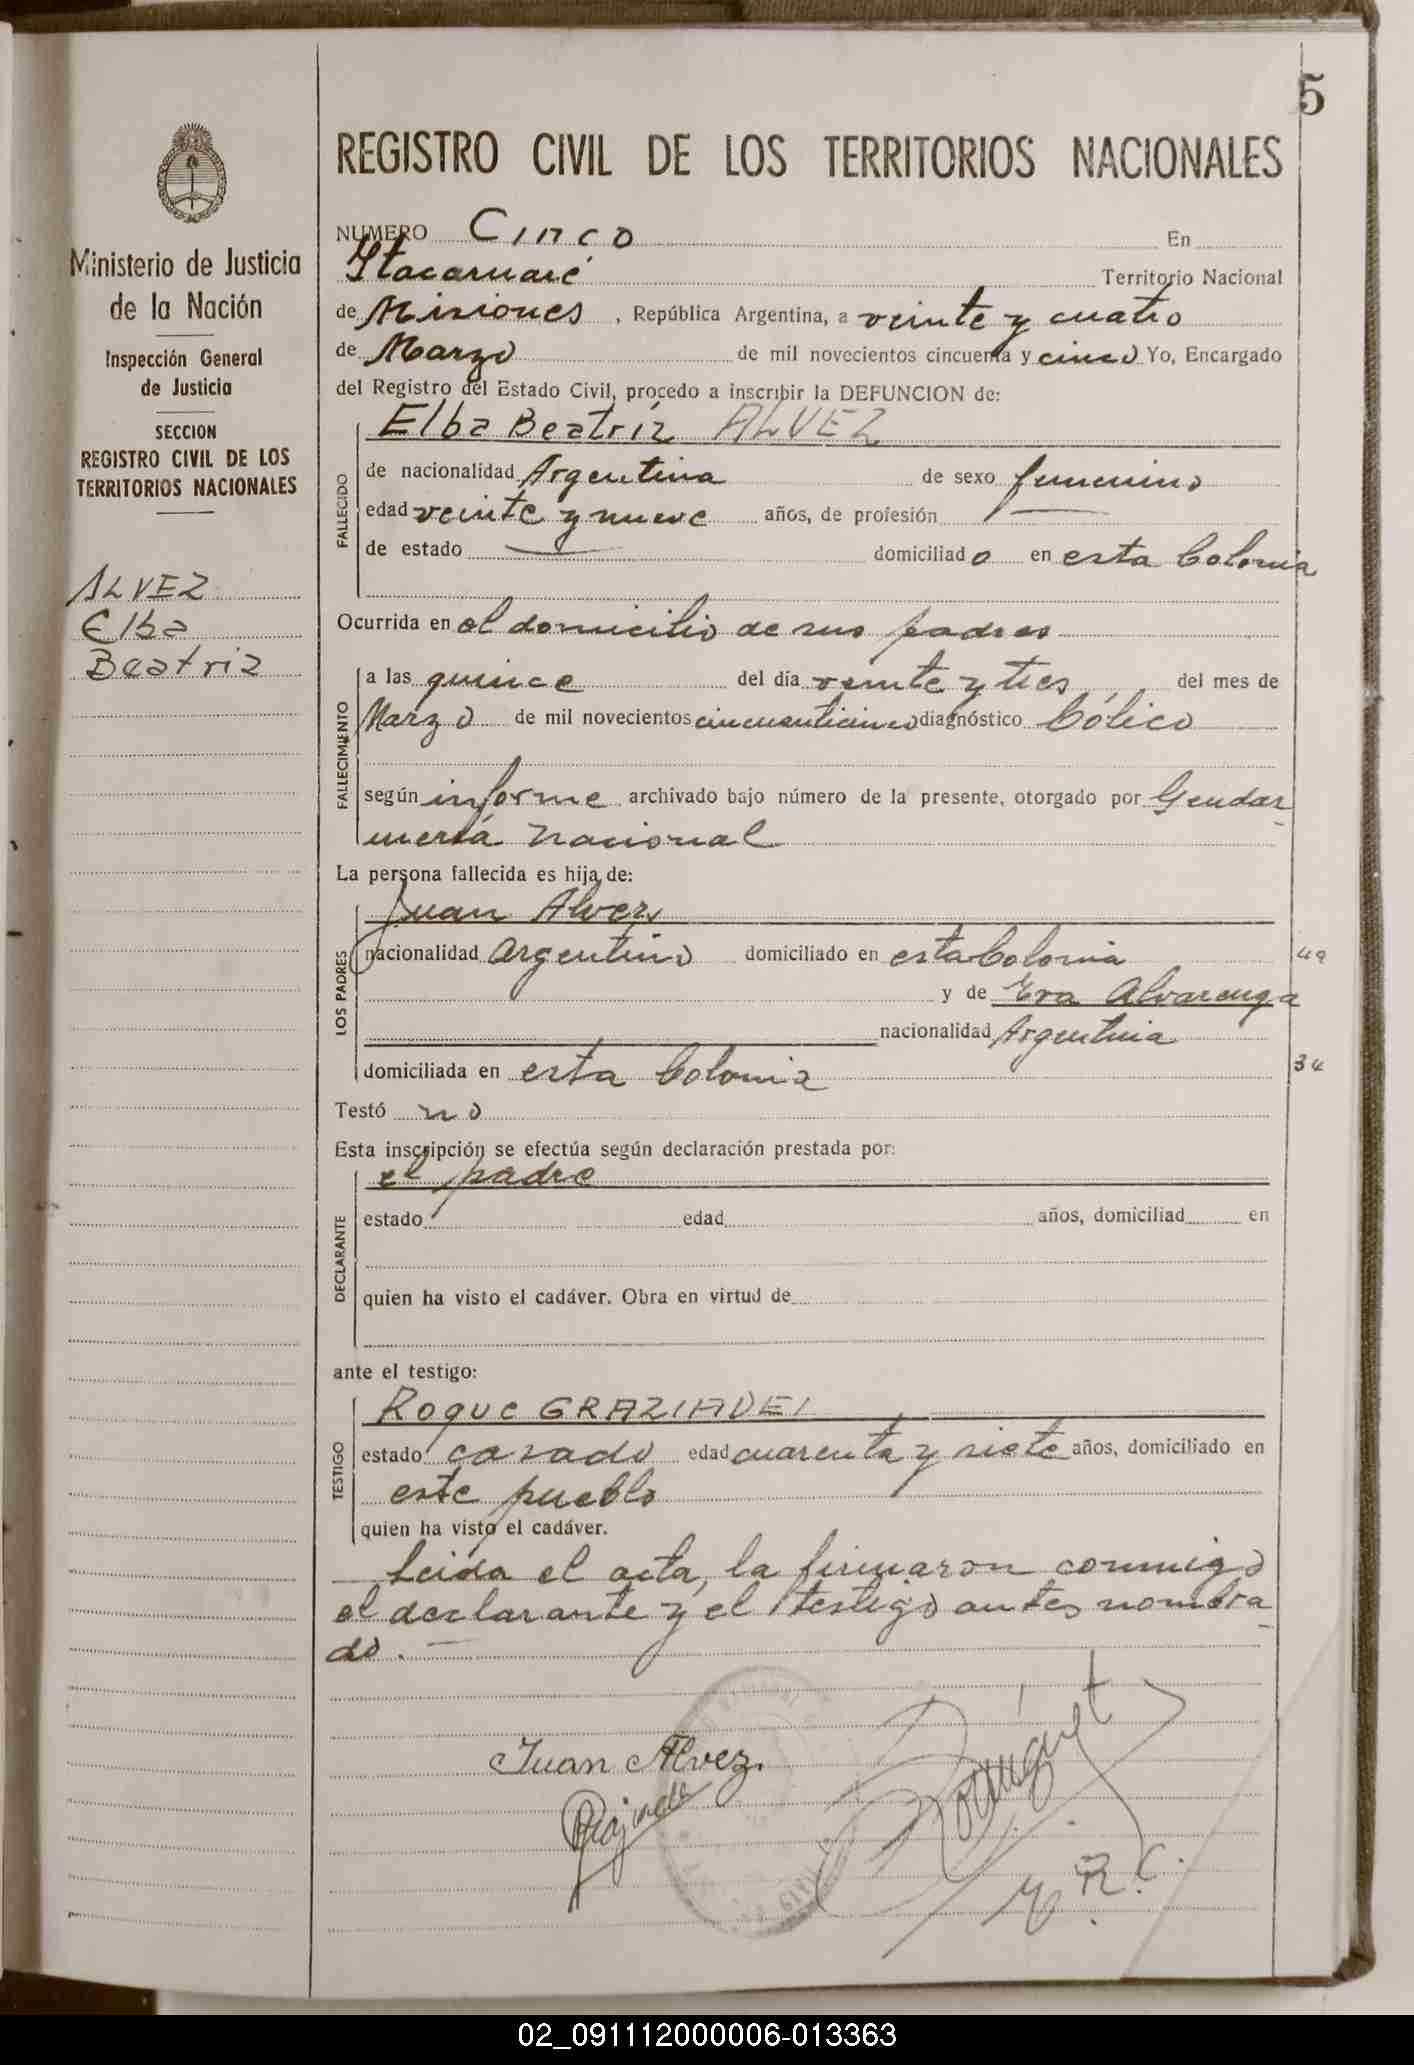 5
REGISTRO CIVIL DE LOS TERRITORIOS NACIONALES
Ministerio de Justicia
de la Nación
Inspección General
de Justicia
SECCION
REGISTRO CIVIL DE LOS
TERRITORIOS NACIONALES
ALVEZ
Elba
Beatriz
NUMERO Cinco En
Itacaruaré Territorio Nacional
de Misiones, República Argentina, a veinte y cuatro
de Marzo de mil novecientos cincuenta y cinco Yo, Encargado
del Registro del Estado Civil, procedo a inscribir la DEFUNCION de:
Elba Beatríz ALVEZ
FALLECIDO
de nacionalidad Argentina de sexo femenino
edad veinte y nueve años, de profesión
de estado domiciliado en esta Colonia
Ocurrida en el domicilio de sus padres
FALLECIMIENTO
a las quince del día veinte y tres del mes de
Marzo de mil novecientos cincuenticinco diagnóstico Cólico
según informe archivado bajo número de la presente, otorgado por Gendar-
mería Nacional
La persona fallecida es hija de:
LOS PADRES
Juan Alvez
nacionalidad Argentino domiciliado en esta Colonia 49
y de Eva Alvarenga
nacionalidad Argentina
domiciliada en esta Colonia 34
Testó no
Esta inscripción se efectúa según declaración prestada por:
DECLARANTE
el padre
estado edad años, domiciliad en
quien ha visto el cadáver. Obra en virtud de
ante el testigo:
TESTIGO
Roque GRAZIADEI
estado casado edad cuarenta y siete años, domiciliado en
este pueblo
quien ha visto el cadáver.
Leida el acta, la firmaron conmigo
el declarante y el testigo antes nombra-
do.
Juan Alvez.
02_091112000006-013363